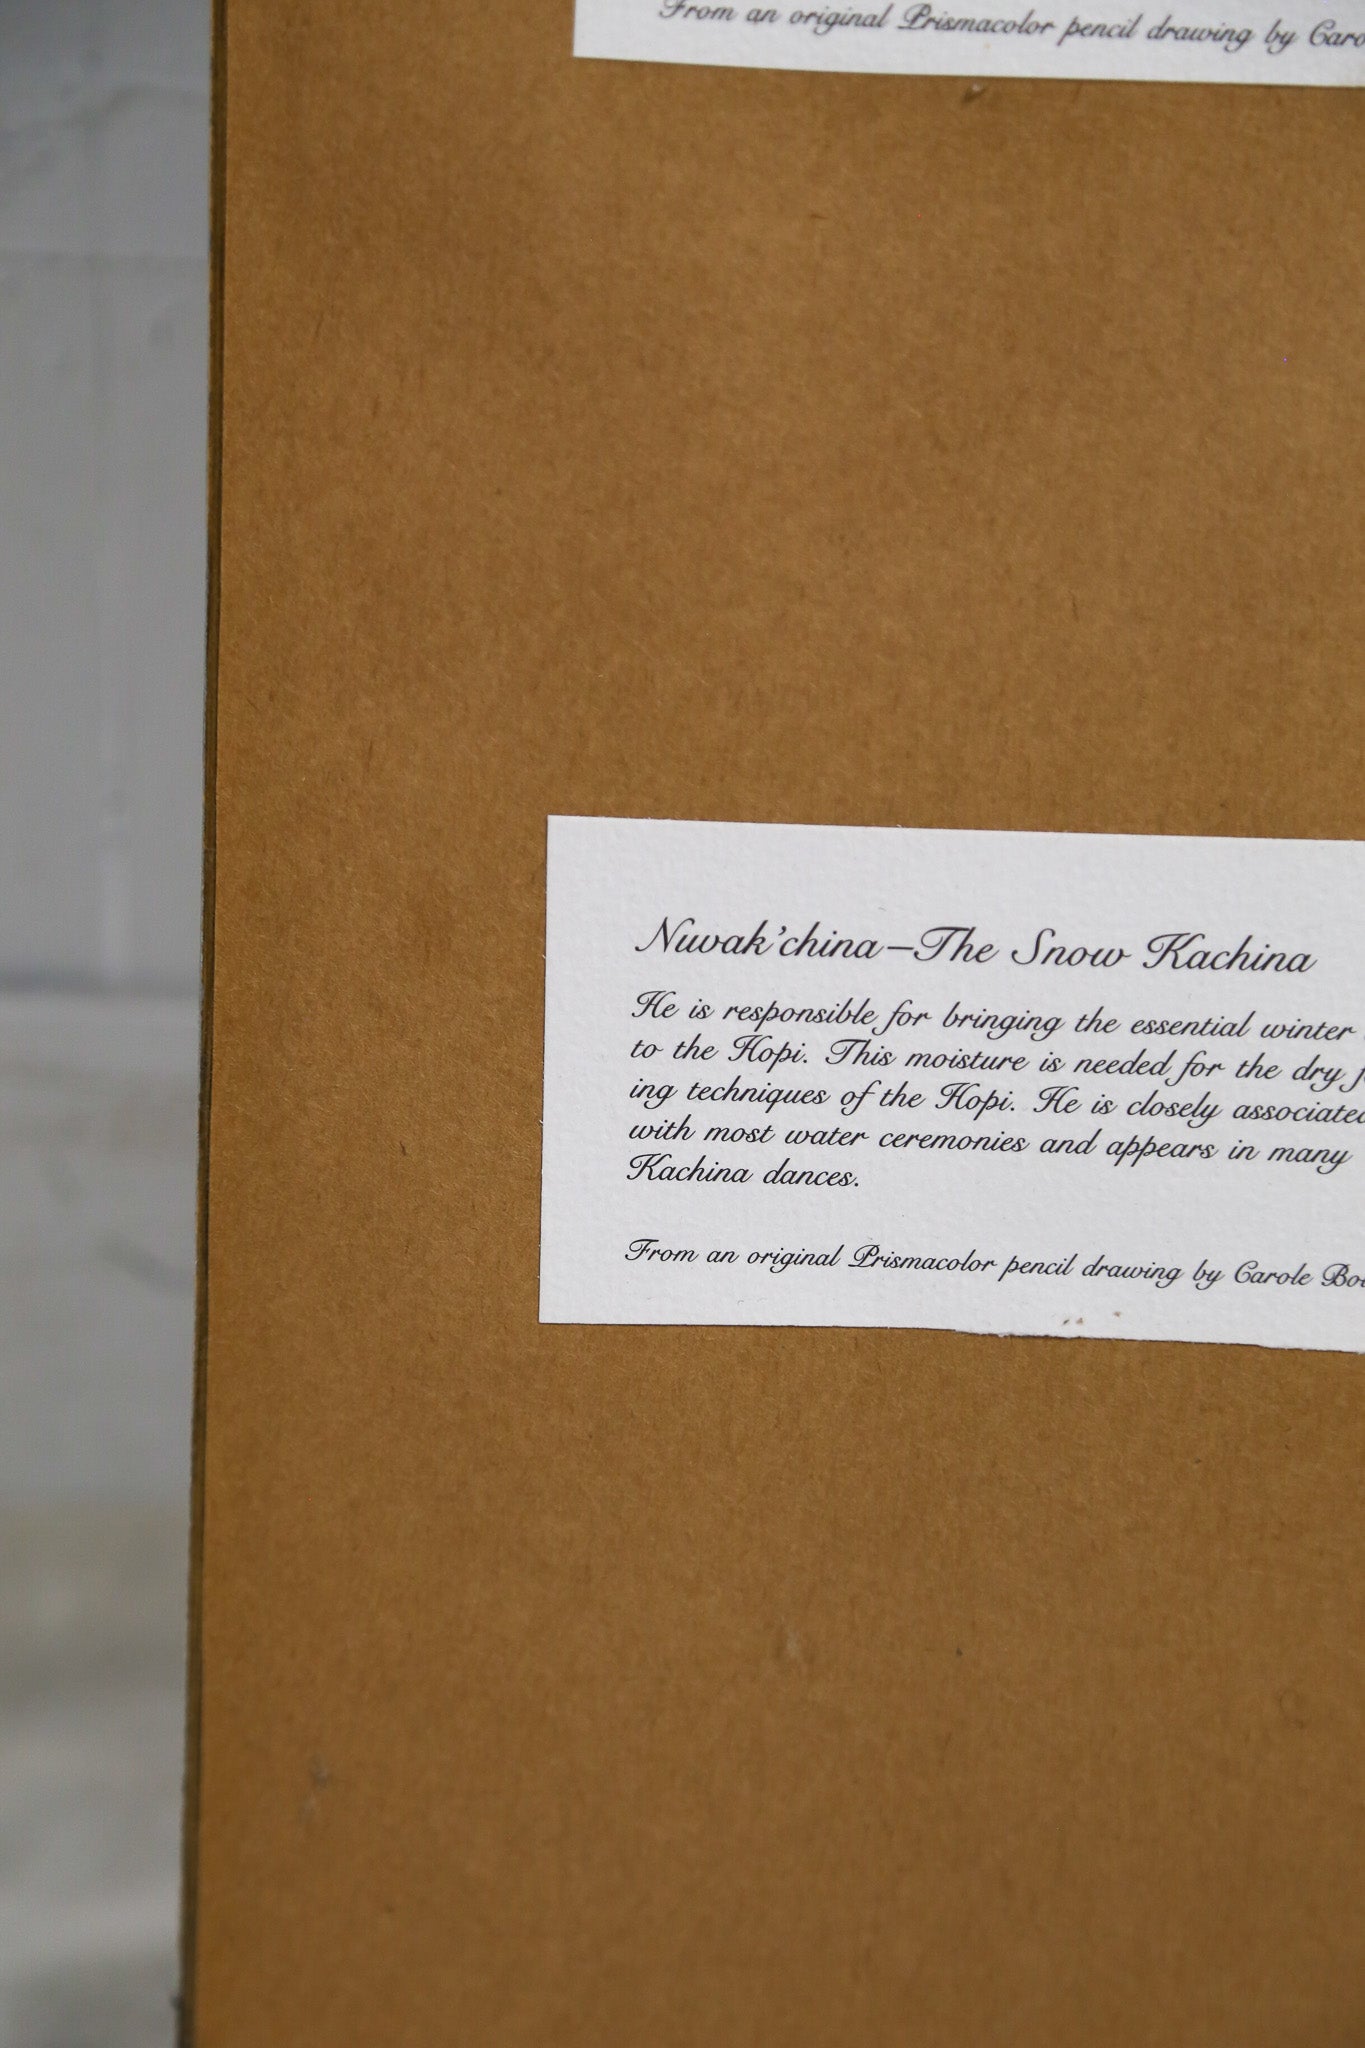 From an original Prismacolor pencil drawing by
Nuvak'china—The Snow Kachina
He is responsible for bringing the essential winter
to the Hopi. This moisture is needed for the dry
ing techniques of the Hopi. He is closely associated
with most water ceremonies and appears in many
Kachina dances.
From an original Prismacolor pencil drawing by Carole